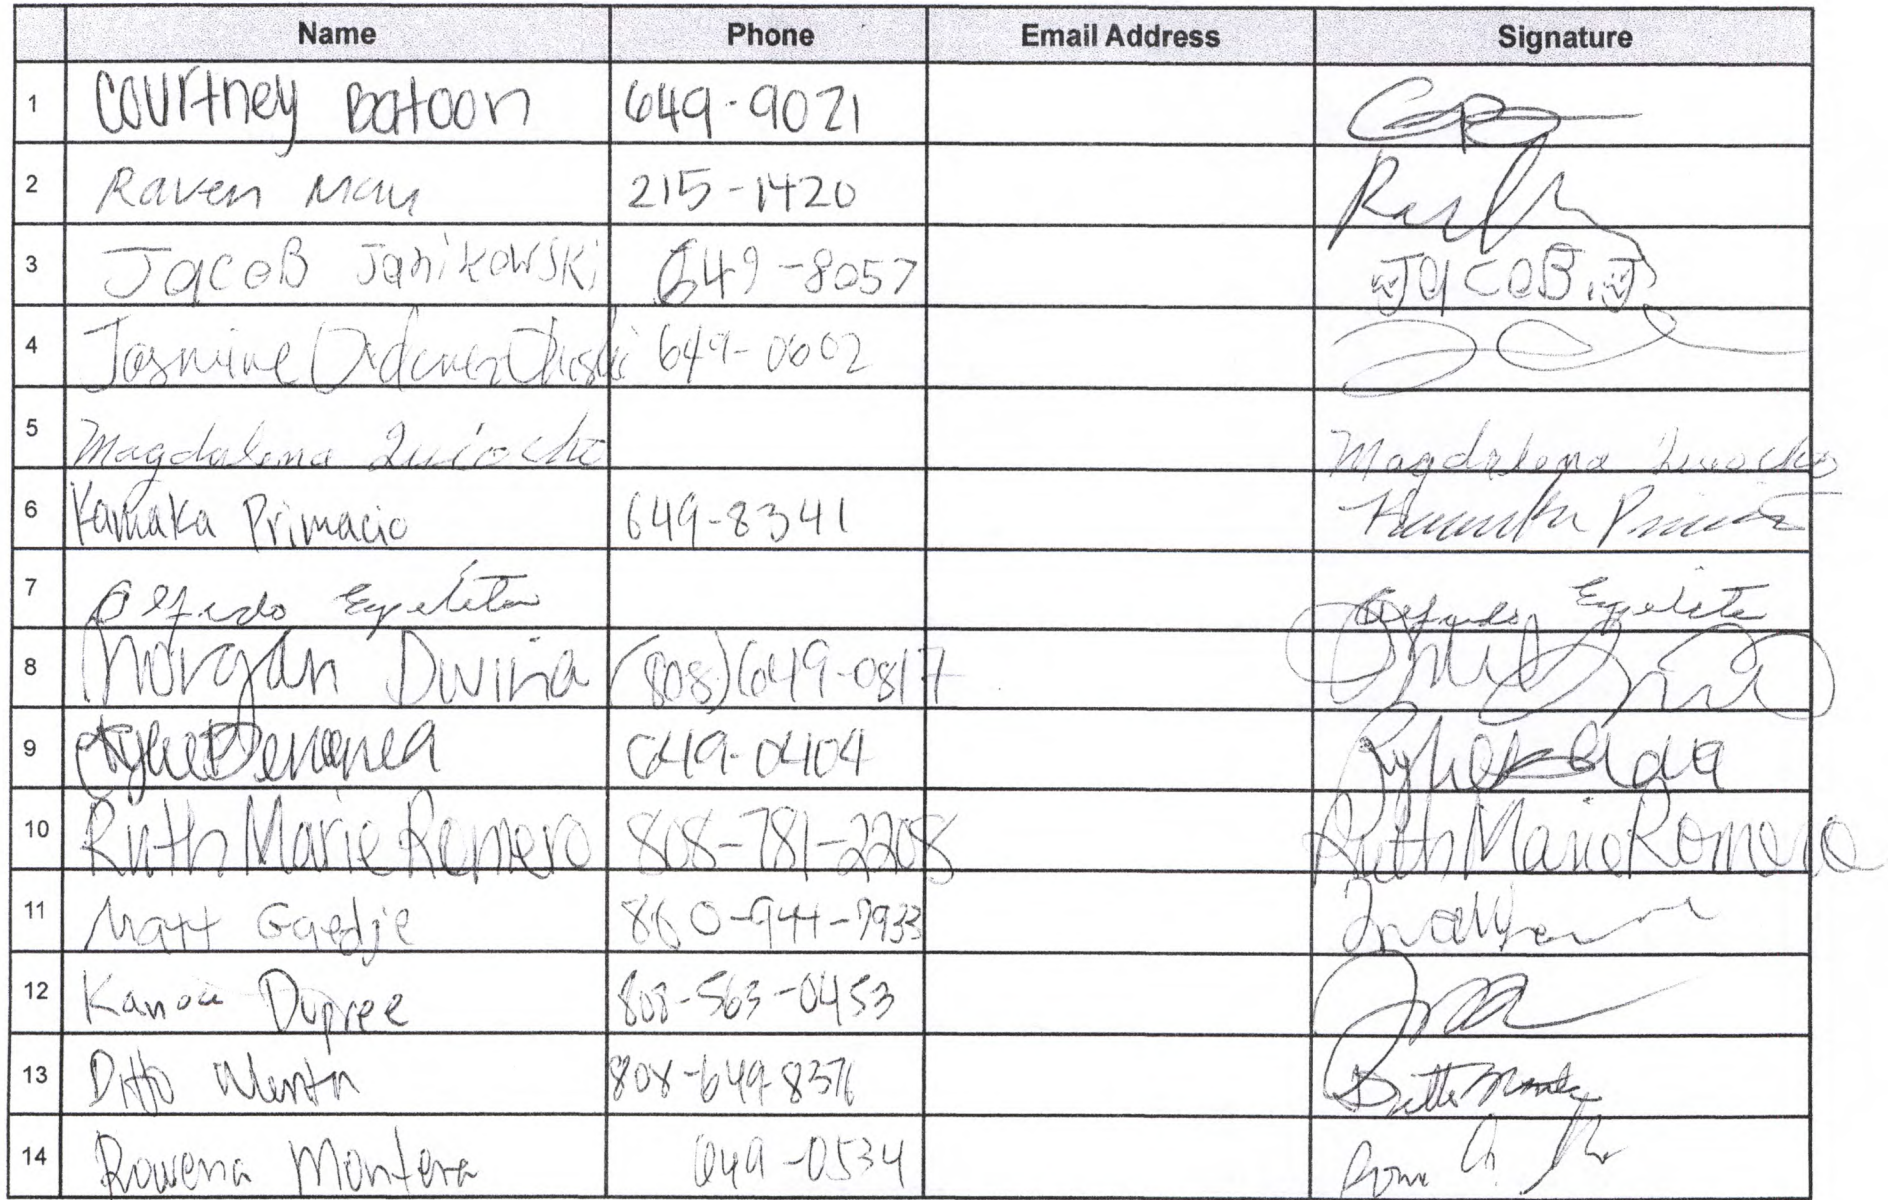 Name Phone Email Address Signature
1 Courtney Batoon 649-9021
2 Raven May 215-1420
3 JacoB Janikowski 649-8057 JacoB.J
4 Jasmine 649-0602
5 Magdalena Quiocho Magdalena Quiocho
6 Kamaka Primacio 649-8341
7 Alfredo Espeleta Alfredo Espeleta
8 Morgan Duvina (808)649-0817
9 649-0404
10 Ruth Marie Romero 808-781-2208 Ruth Marie Romero
11 Matt Gaedje 860-944-7933
12 Kanoa Dupree 808-563-0453
13 Ditto 808-649-8376
14 Rowena Montera 649-0534